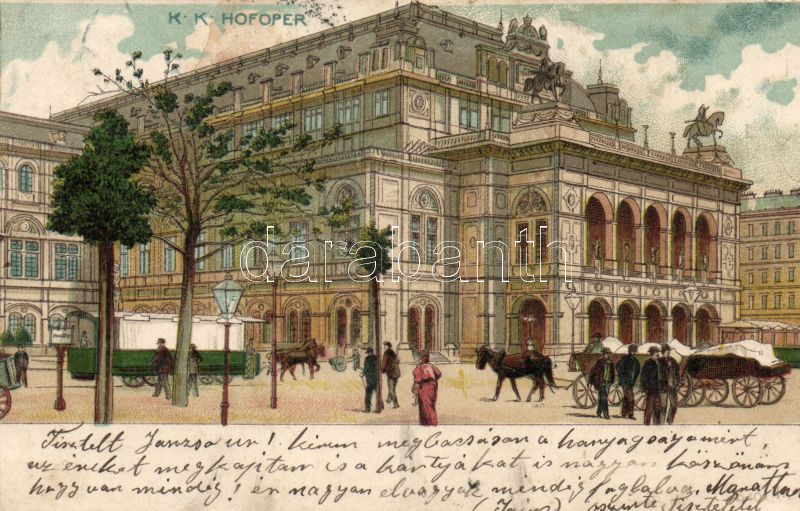 K. K. HOFOPER
darabanth
Tisztelt Janzsa ur! kérem megbocsásson a hanyagságamért,
az éneket megkaptam is a kartyákat is nagyon köszönöm
hogy van mindig! én nagyon elvagyok mindig foglalva, Maradtam
tisztelettel